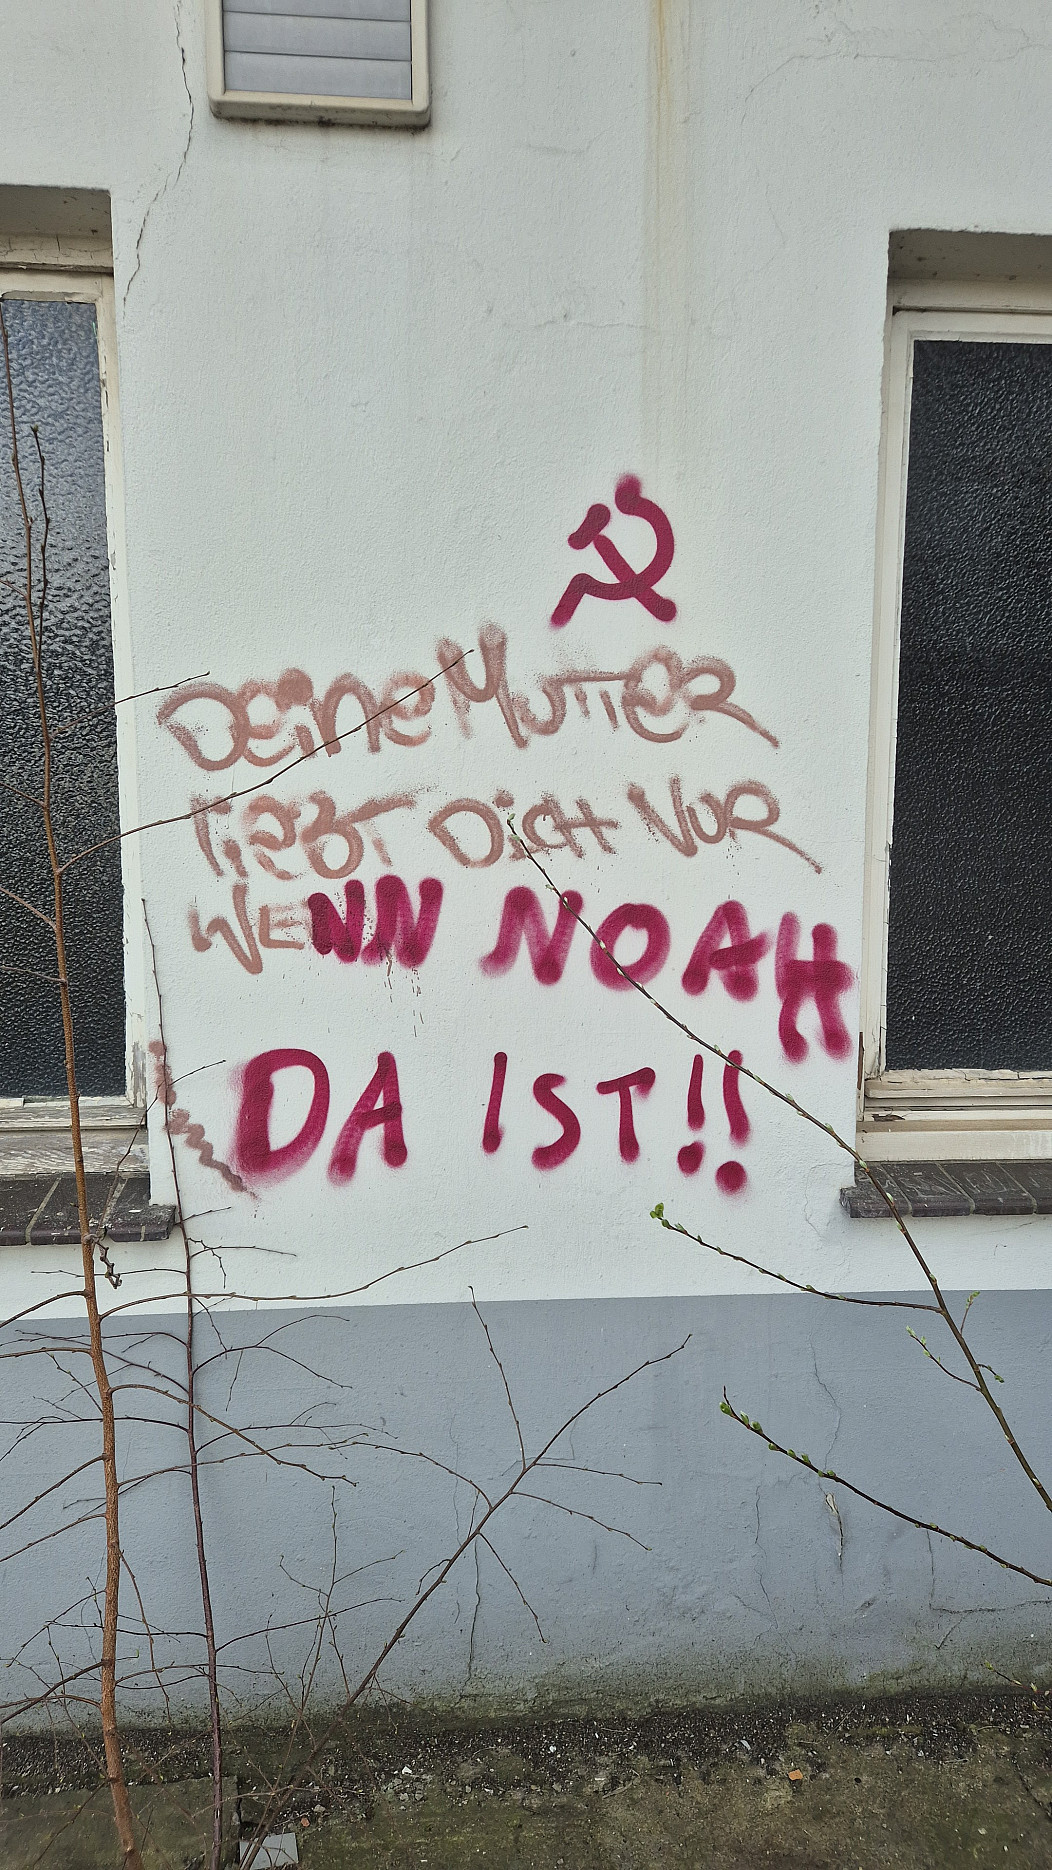 DeiNe MuTTER
liEBT DicH NUR
WENN NOAH
DA IST!!